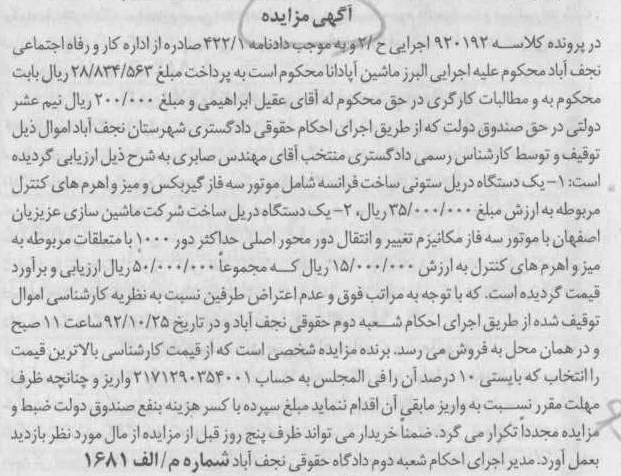 آگهی مزایده
در پرونده کلاسه ۹۲۰۱۹۲ اجرایی ح/۲ و به موجب دادنامه ۴۲۲/۱ صادره از اداره کار و رفاه اجتماعی
نجف آباد محکوم علیه اجرایی البرز ماشین آپادانا محکوم است به پرداخت مبلغ ۲۸/۸۳۴/۵۶۳ ریال بابت
محکوم به و مطالبات کارگری در حق محکوم له آقای عقیل ابراهیمی و مبلغ ۲۰۰/۰۰۰ ریال نیم عشر
دولتی در حق صندوق دولت که از طریق اجرای احکام حقوقی دادگستری شهرستان نجف آباد اموال ذیل
توقیف و توسط کارشناس رسمی دادگستری منتخب آقای مهندس صابری به شرح ذیل ارزیابی گردیده
است: ۱- یک دستگاه دریل ستونی ساخت فرانسه شامل موتور سه فاز گیربکس و میز و اهرم های کنترل
مربوطه به ارزش مبلغ ۳۵/۰۰۰/۰۰۰ ریال، ۲- یک دستگاه دریل ساخت شرکت ماشین سازی عزیزیان
اصفهان با موتور سه فاز مکانیزم تغییر و انتقال دور محور اصلی حداکثر دور ۱۰۰۰ با متعلقات مربوطه به
میز و اهرم های کنترل به ارزش ۱۵/۰۰۰/۰۰۰ ریال که مجموعاً ۵۰/۰۰۰/۰۰۰ ریال ارزیابی و برآورد
قیمت گردیده است. که با توجه به مراتب فوق و عدم اعتراض طرفین نسبت به نظریه کارشناسی اموال
توقیف شده از طریق اجرای احکام شعبه دوم حقوقی نجف آباد و در تاریخ ۹۲/۱۰/۲۵ ساعت ۱۱ صبح
و در همان محل به فروش می رسد. برنده مزایده شخصی است که از قیمت کارشناسی بالاترین قیمت
را انتخاب که بایستی ۱۰ درصد آن را فی المجلس به حساب ۲۱۷۱۲۹۰۳۵۴۰۰۱ واریز و چنانچه ظرف
مهلت مقرر نسبت به واریز مابقی آن اقدام ننماید مبلغ سپرده با کسر هزینه بنفع صندوق دولت ضبط و
مزایده مجدداً تکرار می گرد. ضمناً خریدار می تواند ظرف پنج روز قبل از مزایده از مال مورد نظر بازدید
بعمل آورد. مدیر اجرای احکام شعبه دوم دادگاه حقوقی نجف آباد شماره م/الف ۱۶۸۱